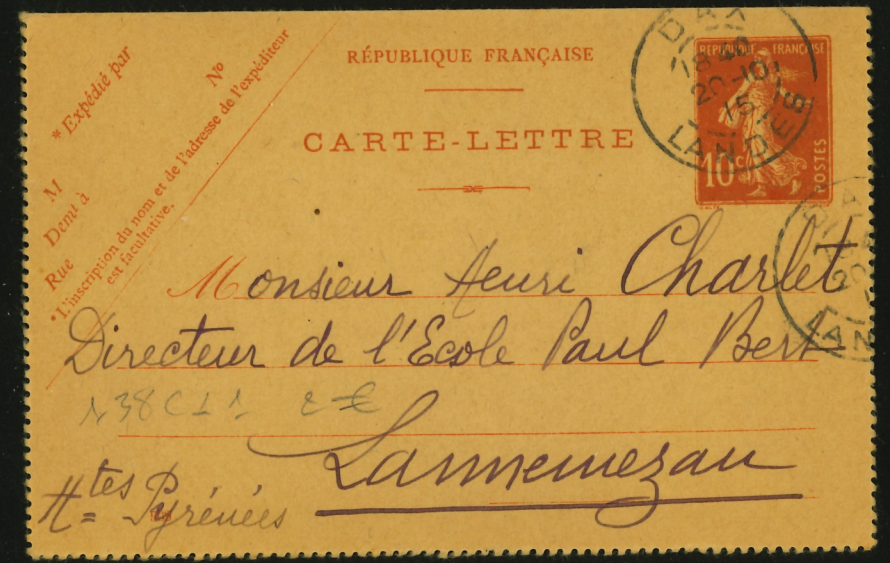 * Expédié par
M
Demt à
Rue
Nº
* L'inscription du nom et de l'adresse de l'expéditeur
est facultative.
RÉPUBLIQUE FRANÇAISE
CARTE-LETTRE
RÉPUBLIQUE FRANÇAISE
10c
POSTES
DAX
18 45
20-10
15
LANDES
20
LAN
Monsieur Henri Charlet
Directeur de l'Ecole Paul Bert
Lannemezan
Htes Pyrénées